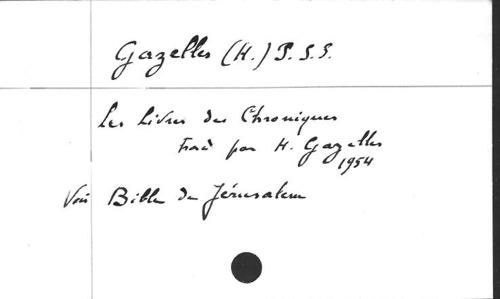 Gazelles (H.) P.S.S.
Les Livres des Chroniques
trad par H. Gazelles
1954
Voir Bible de Jérusalem